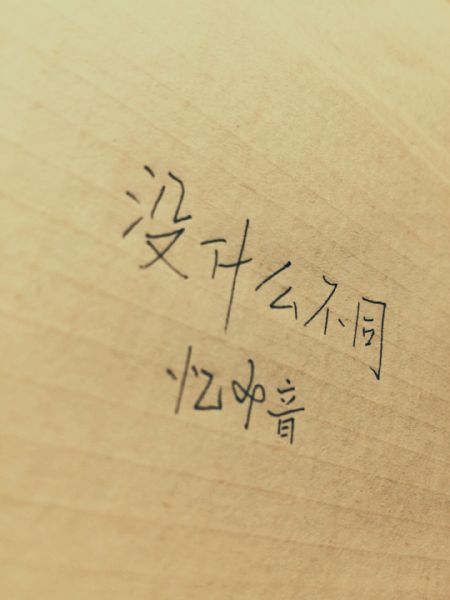 没什么不同
忆中音